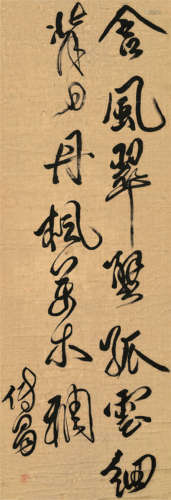 含風翠壁孤雲細
背日丹楓萬木稠
傅眉